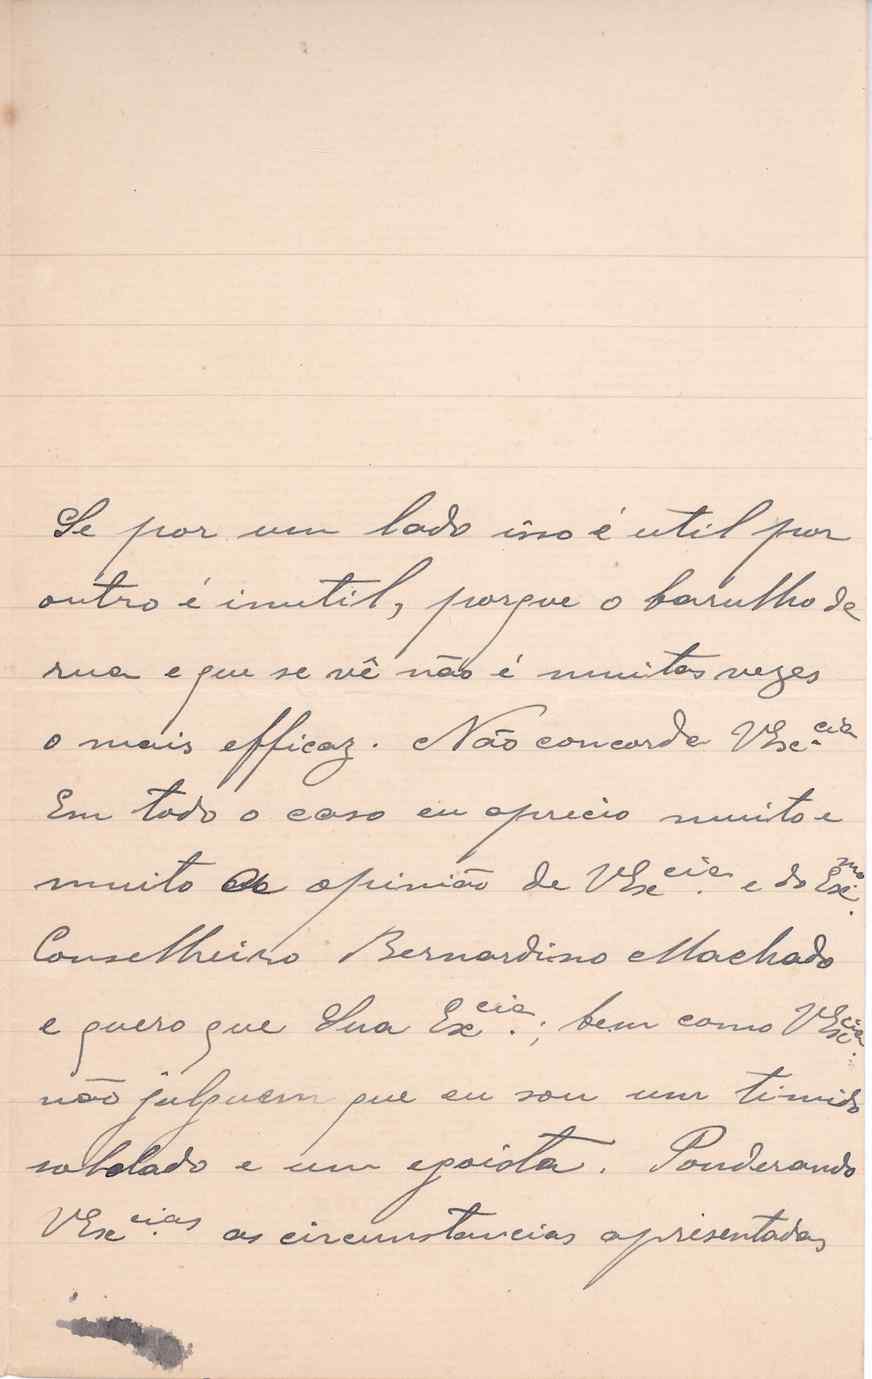 Se por um lado isso é util por
outro é inutil, porque o barulho da
rua e que se vê não é muitas vezes
o mais efficaz. Não concorda VEx.cia
Em todo o caso eu aprecio muito e
muito a opinião de VEx.cia e do Ex.mo
Conselheiro Bernardino Machado
e quero que Sua Ex.cia; bem como VEx.cia
não julguem que eu sou um timido
soldado e um egoista. Ponderando
VEx.cias as circumstancias apresentadas